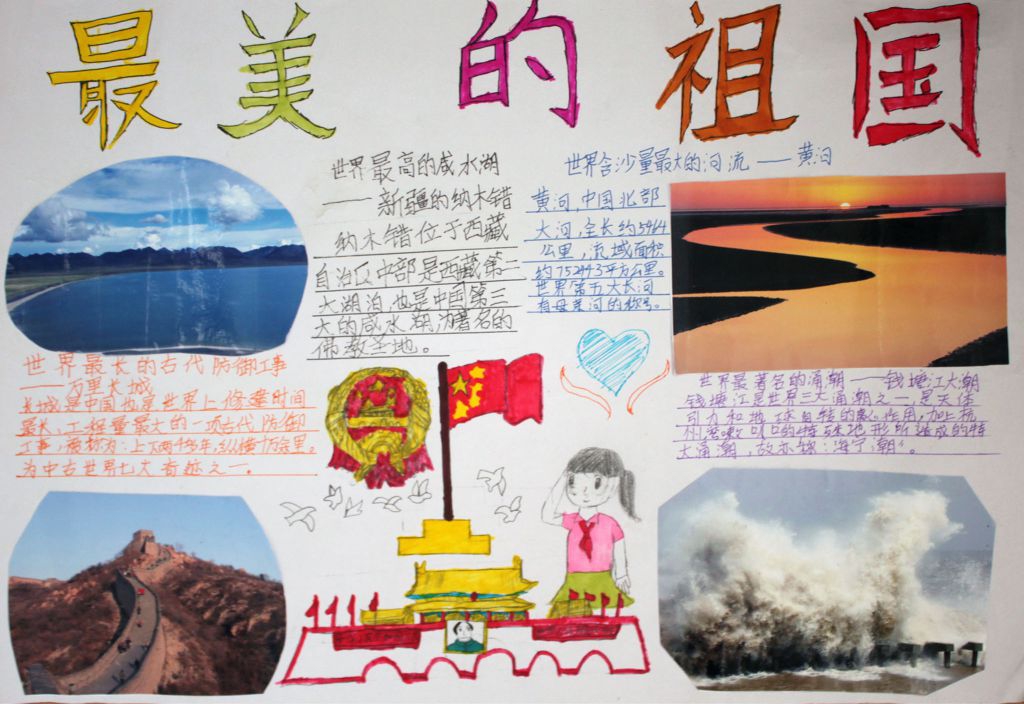 最美的祖国
世界最高的咸水湖
——新疆的纳木错
纳木错位于西藏
自治区中部是西藏第二
大湖泊,也是中国第三
大的咸水湖,为著名的
佛教圣地。
世界含沙量最大的河流——黄河
黄河,中国北部
大河,全长约5464
公里,流域面积
约752443平方公里。
世界第五大长河
有母亲河的称号。
世界最长的古代防御工事
——万里长城
长城是中国也是世界上修建时间
最长,工程量最大的一项古代防御
工事,被称为:上下两千多年,纵横十万余里。
为中古世界七大奇迹之一。
世界最著名的涌潮——钱塘江大潮
钱塘江是世界三大涌潮之一,是天体
引力和地球自转的离心作用,加上杭
州湾喇叭口的特殊地形所造成的特
大涌潮,故亦称:海宁潮。